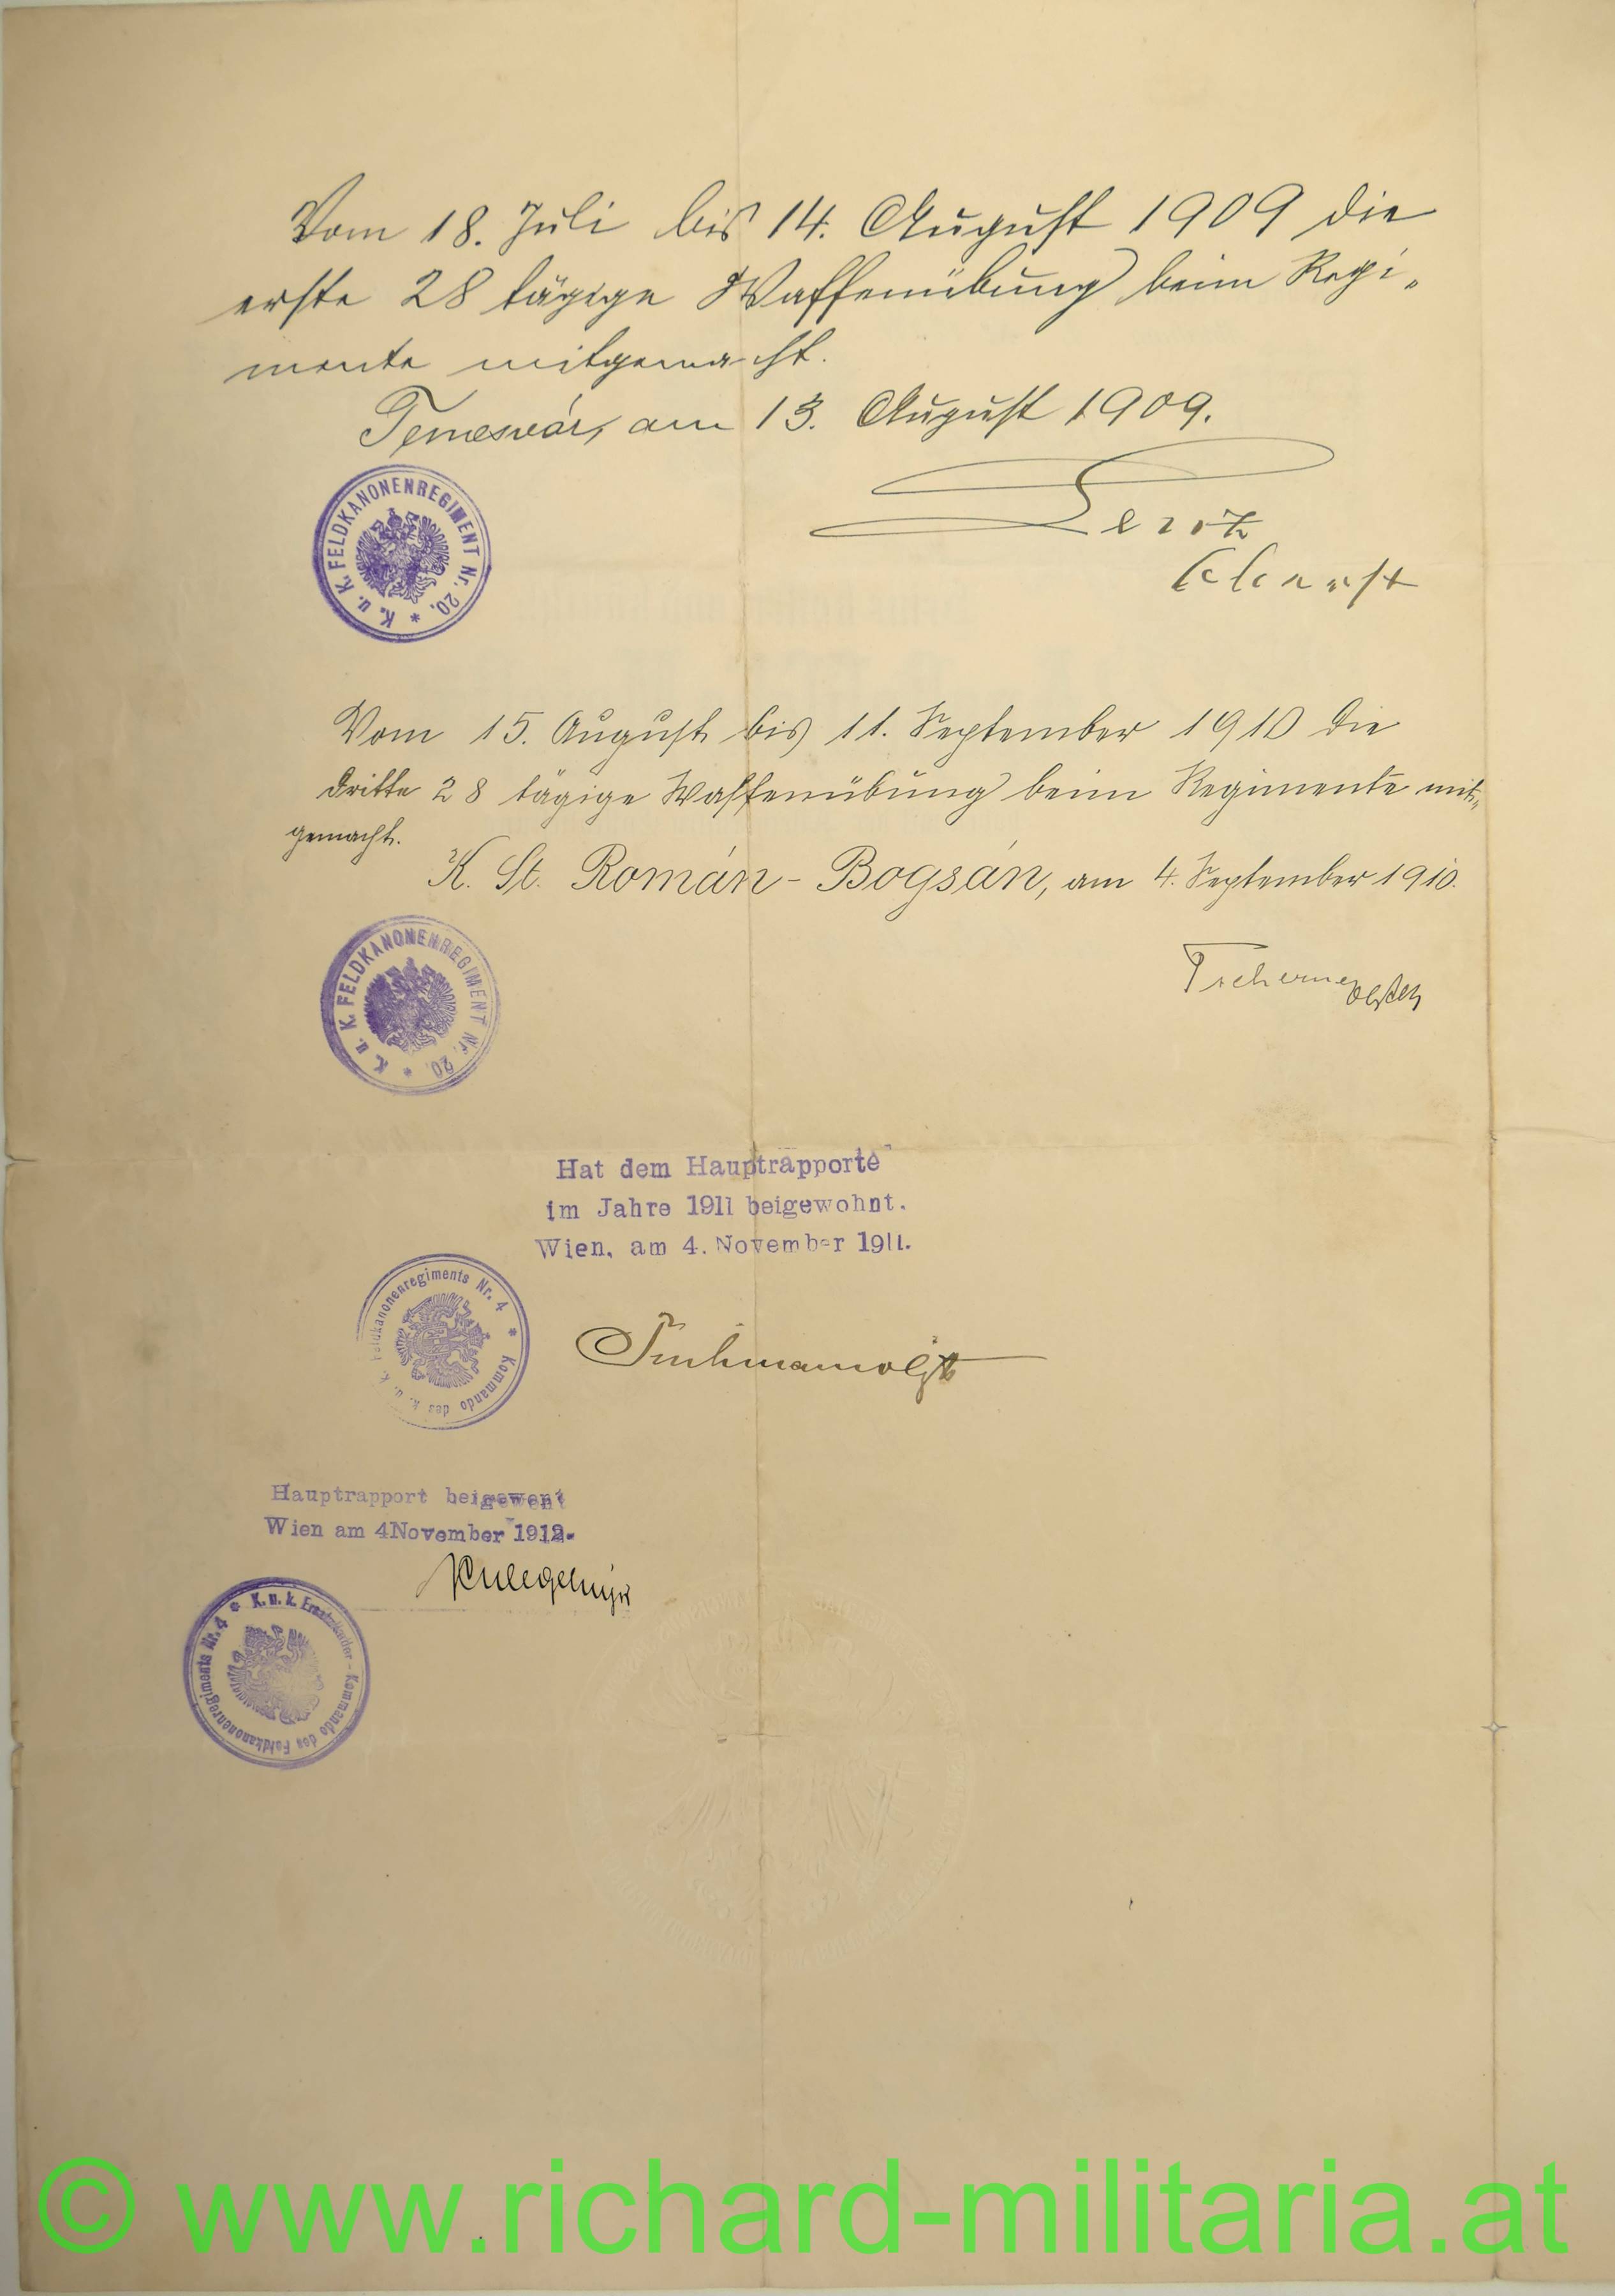 Vom 18. Juli bis 14. August 1909 die
erste 28 tägige Waffenübung beim Regi„
mente mitgemacht.
Temesvár, am 13. August 1909.
K. u. K. FELDKANONENREGIMENT Nr. 20. *
Vom 15. August bis 11. September 1910 die
dritte 28 tägige Waffenübung beim Regimente mit„
gemacht.
K. St. Román - Bogsán, am 4. September 1910.
K. u. K. FELDKANONENREGIMENT Nr. 20. *
Hat dem Hauptrapporte
im Jahre 1911 beigewohnt.
Wien, am 4. November 1911.
Kommando des k. u. k. Feldkanonenregiments Nr. 4 *
Hauptrapport beigewont
Wien am 4November 1912.
K. u. k. Ersatzkader-Kommando des Feldkanonenregiments Nr. 4 *
© www.richard-militaria.at